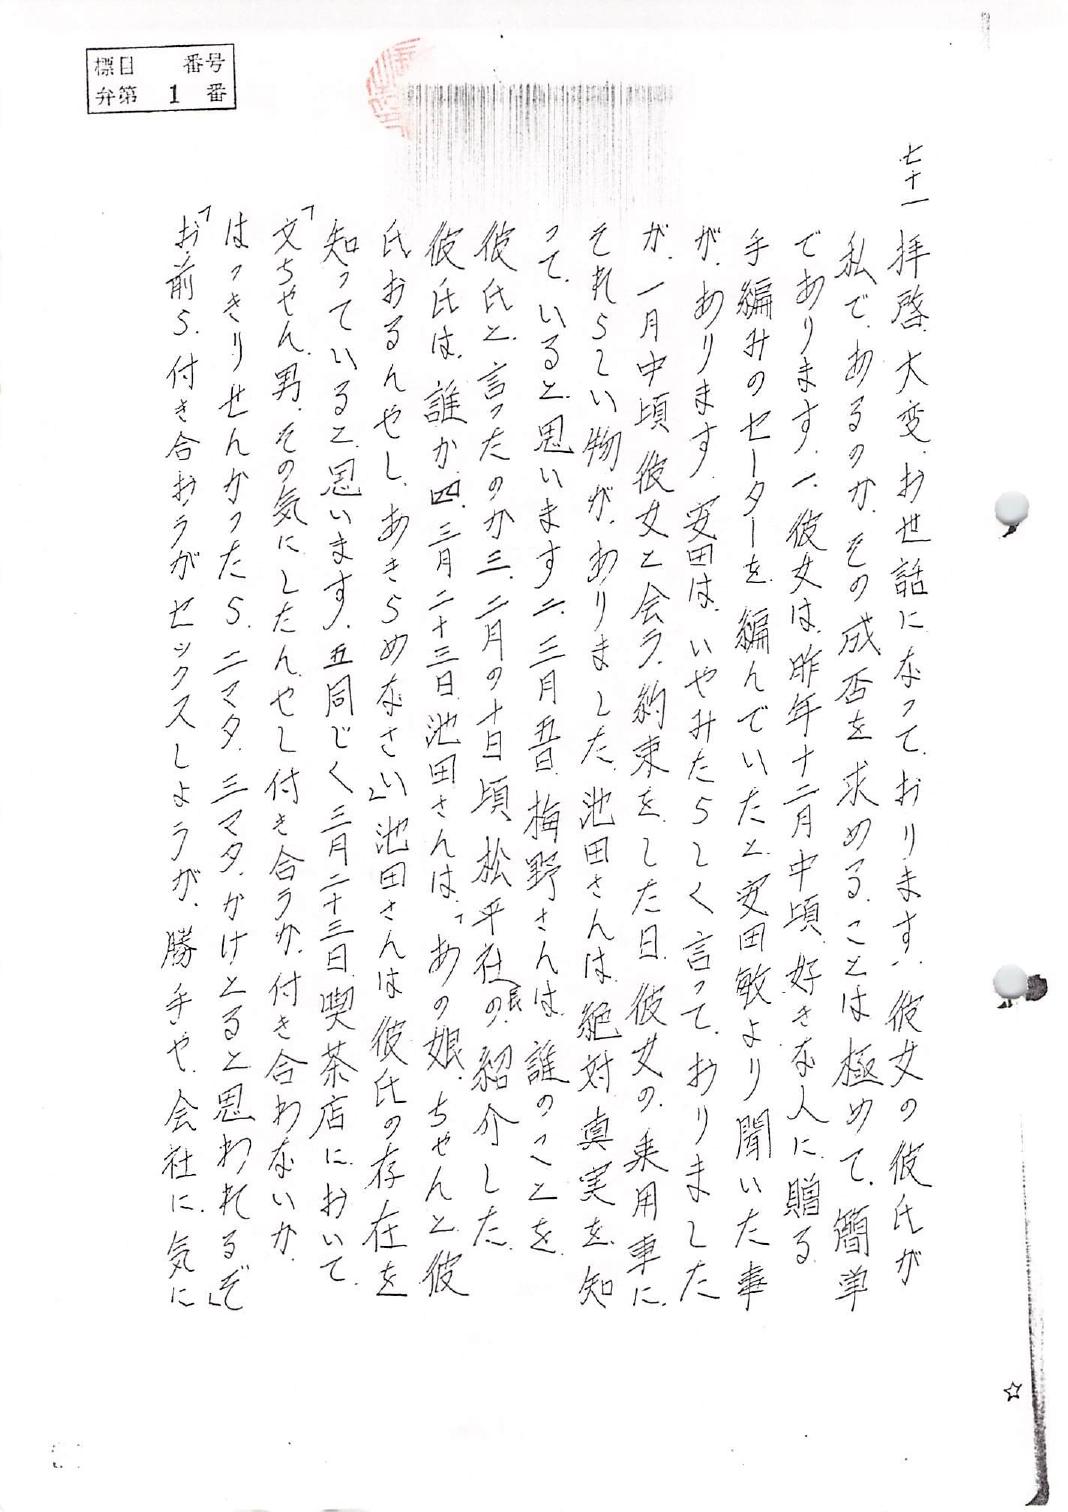 標目　番号
弁第　1　番
七十一
拝啓、大変、お世話になって、おります、彼女の彼氏が
私で、あるのか、その成否を求める、ことは極めて、簡単
であります、一、彼女は、昨年十二月中頃、好きな人に、贈る
手編みのセーターを、編んでいたと、安田敏より聞いた事
が、あります、安田は、いやみたらしく言って、おりました
が、一月中頃、彼女と会う、約束をした日、彼女の、乗用車に、
それらしい物が、ありました、池田さんは、絶対真実を、知
って、いると、思います、二、三月五日、梅野さんは、誰のことを、
彼氏と、言ったのか三、二月の十日頃、松平社長の、紹介した、
彼氏は、誰か、四、三月二十三日、池田さんは、「あの娘、ちゃんと、彼
氏おるんやし、あきらめなさい」池田さんは彼氏の存在を
知っていると、思います、五同じく、三月二十三日、喫茶店に、おいて、
「文ちゃん、男、その気にしたんやし付き合うか、付き合わないか、
はっきりせんかったら、二マタ、三マタ、かけとると思われるぞ」
「お前ら、付き合おうがセックスしようが、勝手や、会社に、気に